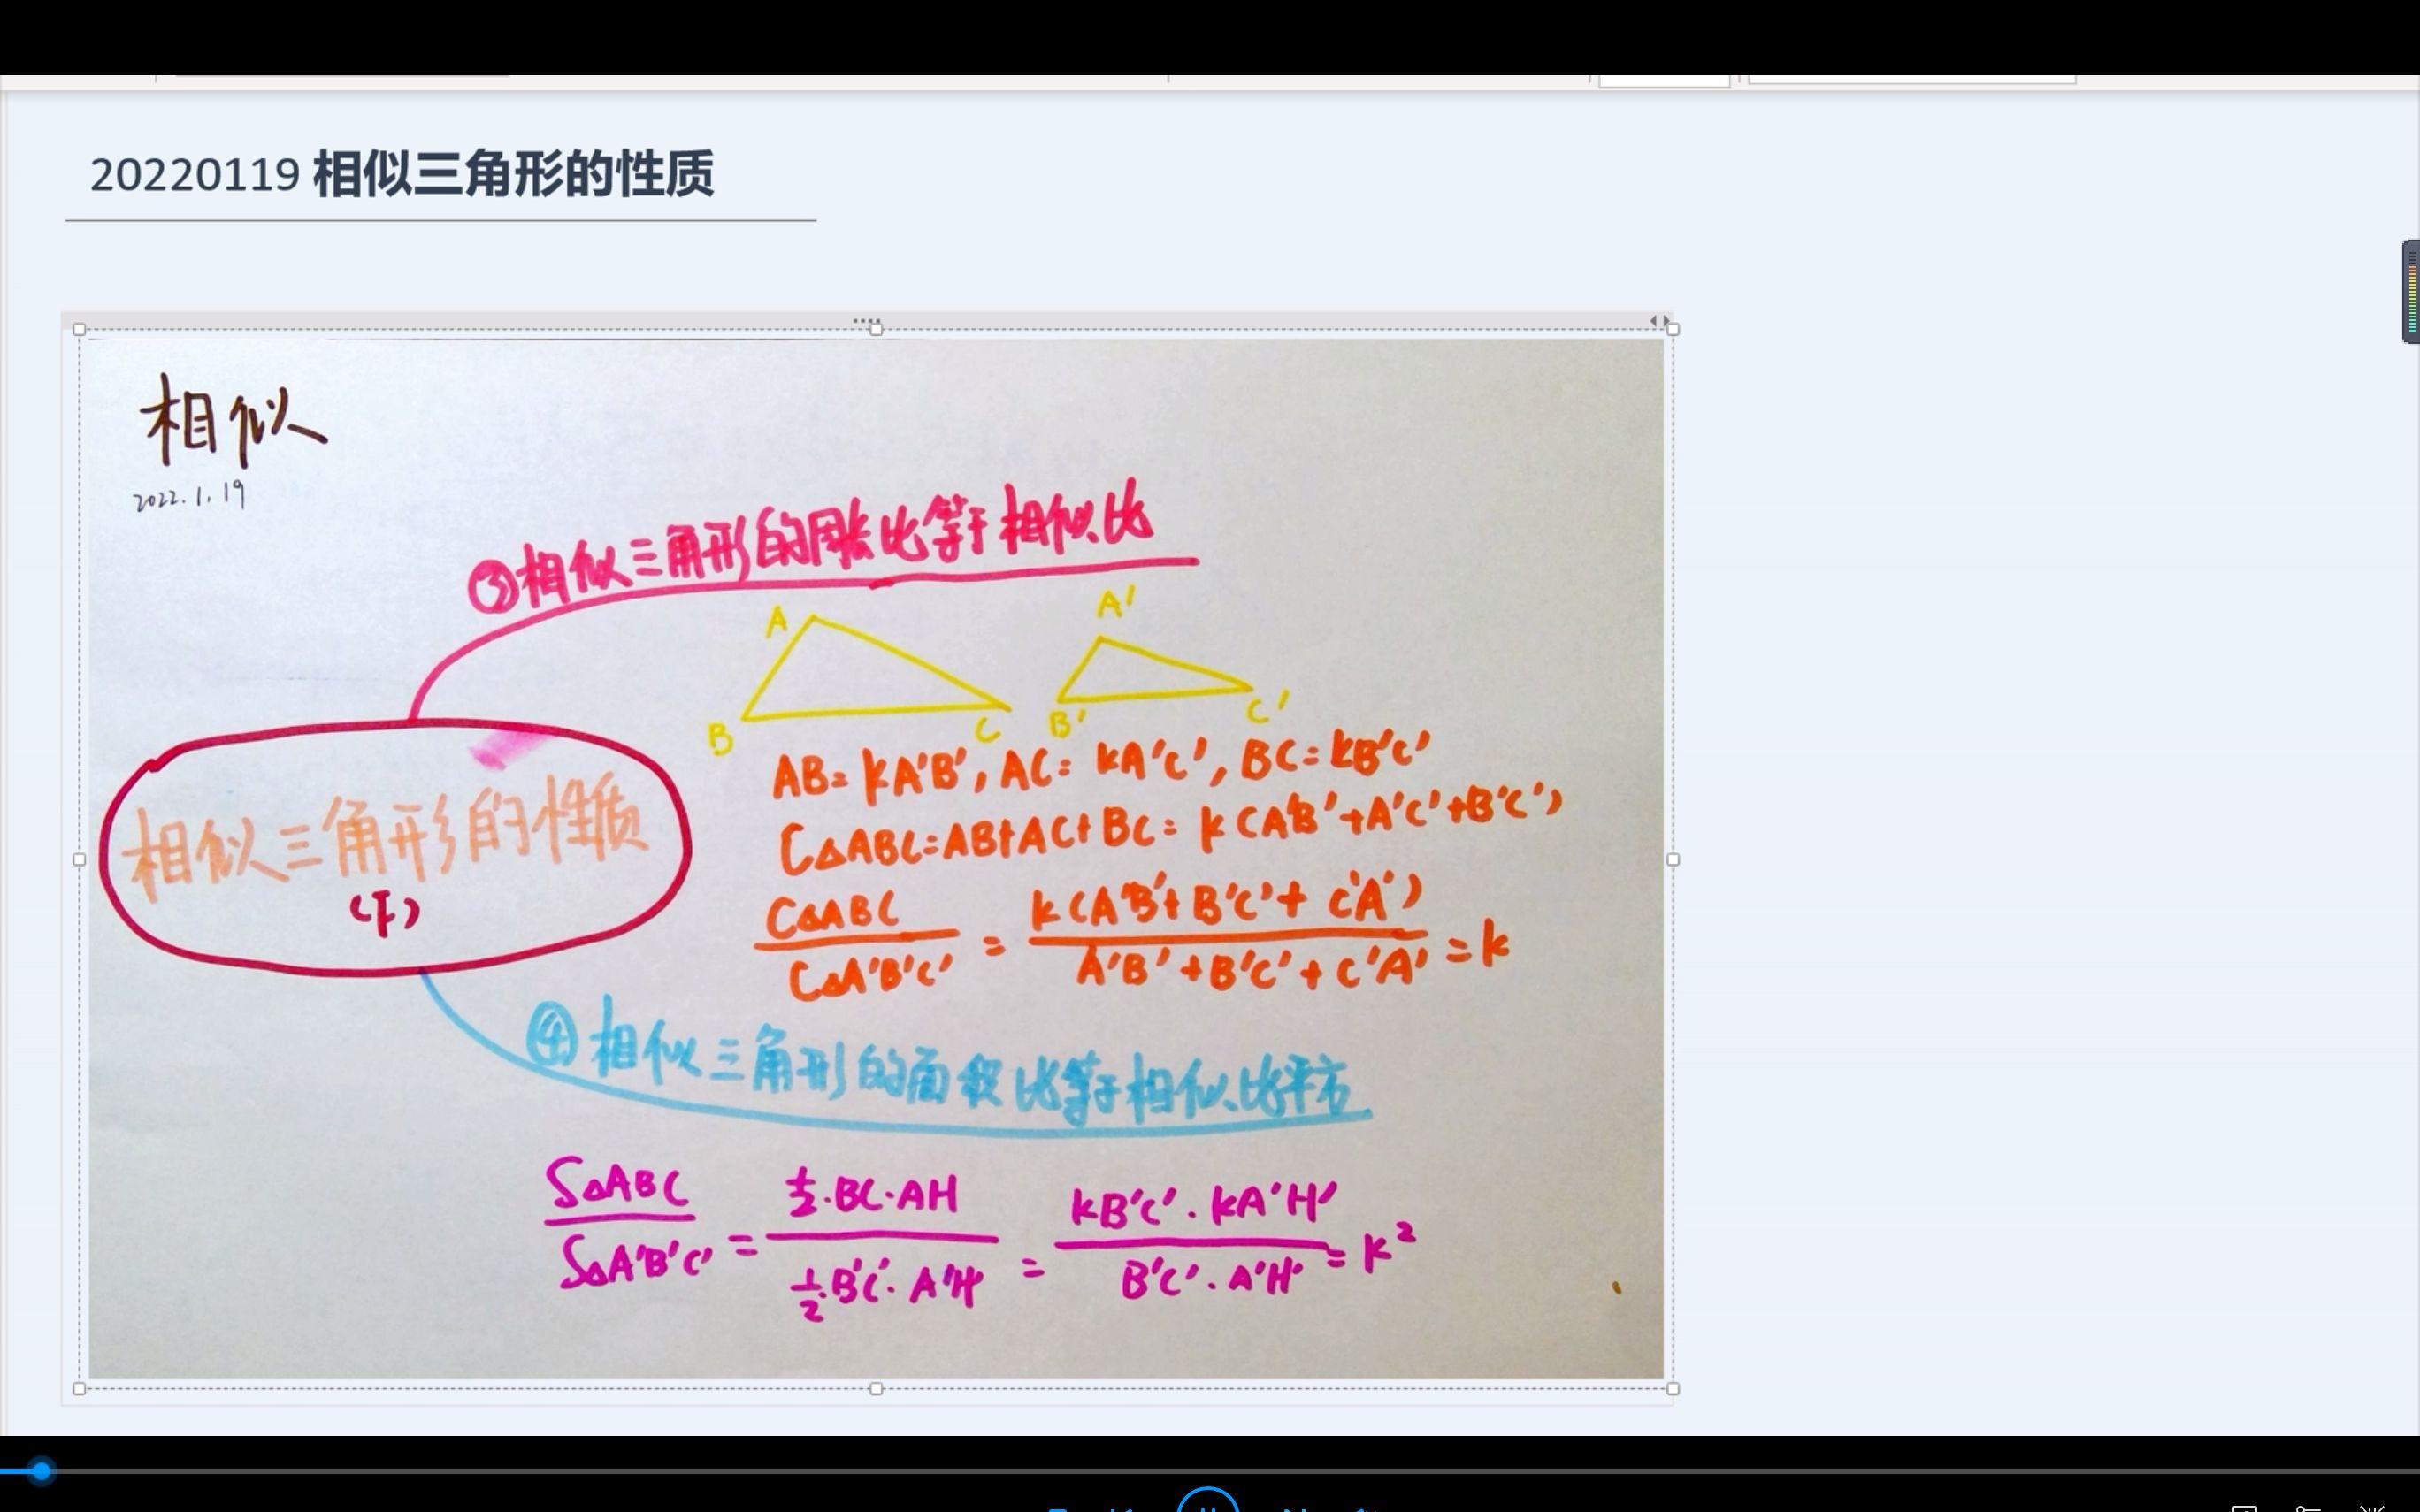 20220119 相似三角形的性质
相似
2022.1.19
③相似三角形的周长比等于相似比
A
A'
B
C
B'
C'
AB=kA'B',AC=kA'C',BC=kB'C'
C△ABC=AB+AC+BC=k(A'B'+A'C'+B'C')
相似三角形的性质
(下)
C△ABC/C△A'B'C' = k(A'B'+B'C'+C'A')/A'B'+B'C'+C'A' =k
④相似三角形的面积比等于相似比平方
S△ABC/S△A'B'C' = ½·BC·AH/½·B'C'·A'H' = kB'C'·kA'H'/B'C'·A'H' =k²